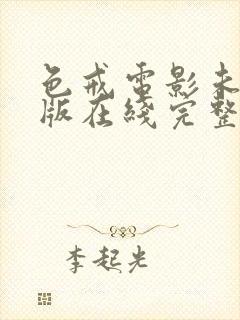 色戒电影未
版在线完整
李起光